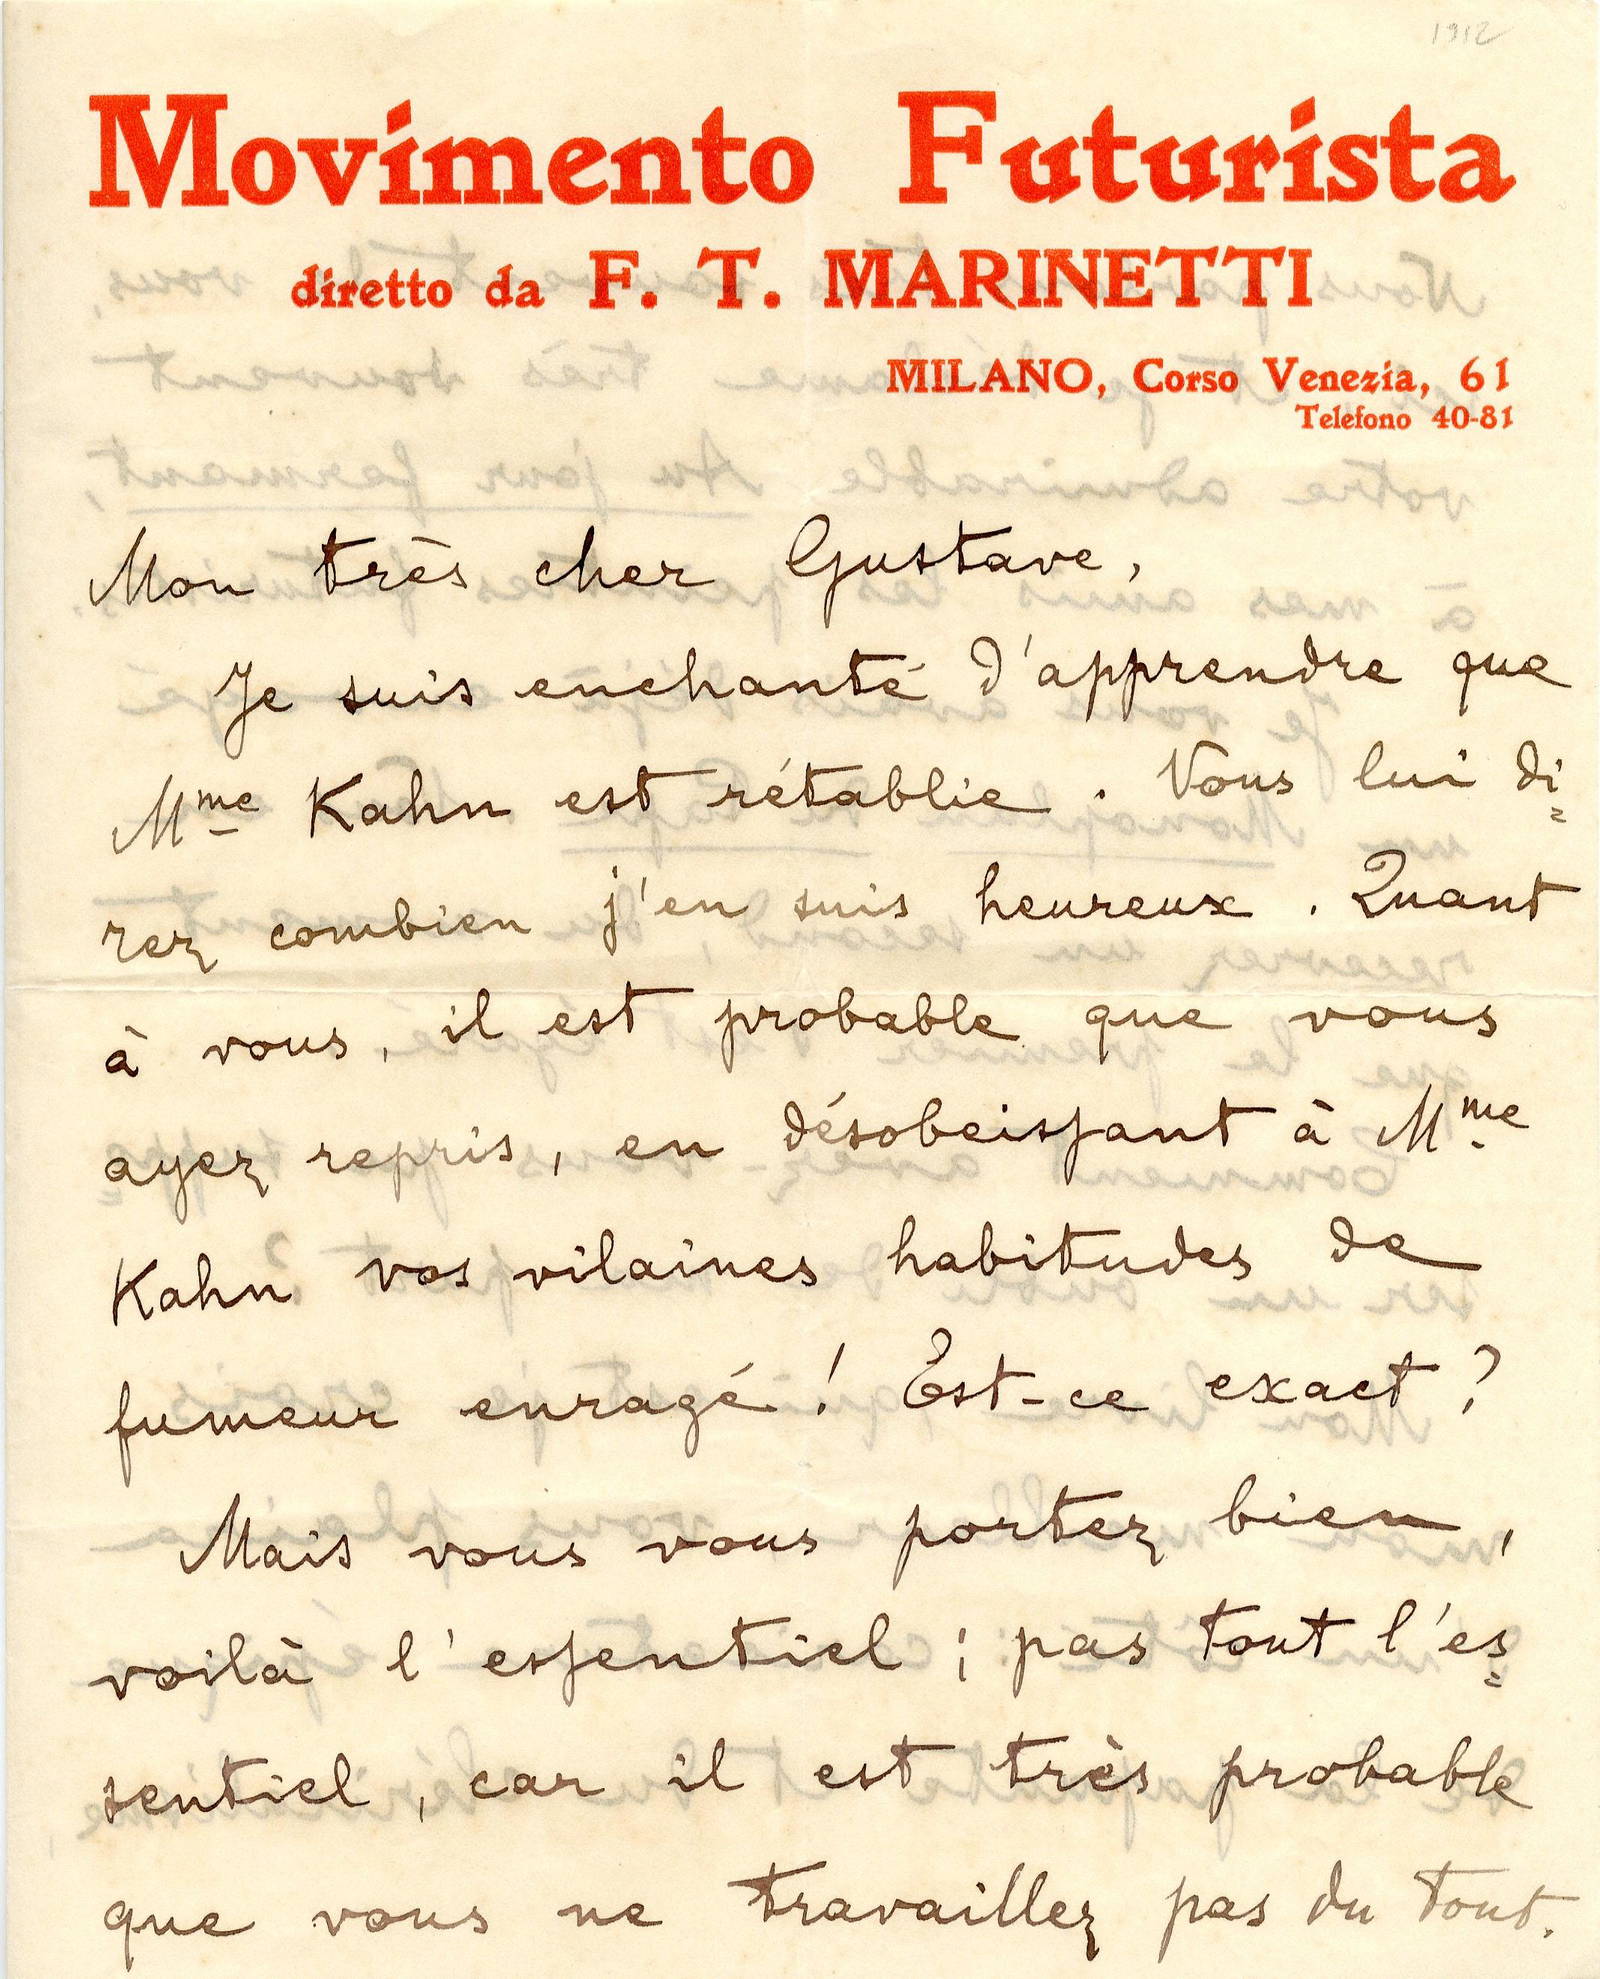 1912
Movimento Futurista
diretto da F. T. MARINETTI
MILANO, Corso Venezia, 61
Telefono 40-81
Mon très cher Gustave,
Je suis enchanté d'apprendre que
Mme Kahn est rétablie. Vous lui di=
rez combien j'en suis heureux. Quant
à vous, il est probable que vous
ayez repris, en désobeissant à Mme
Kahn vos vilaines habitudes de
fumeur enragé! Est-ce exact?
Mais vous vous portez bien,
voilà l'essentiel; pas tout l'es=
sentiel, car il est très probable
que vous ne travaillez pas du tout.